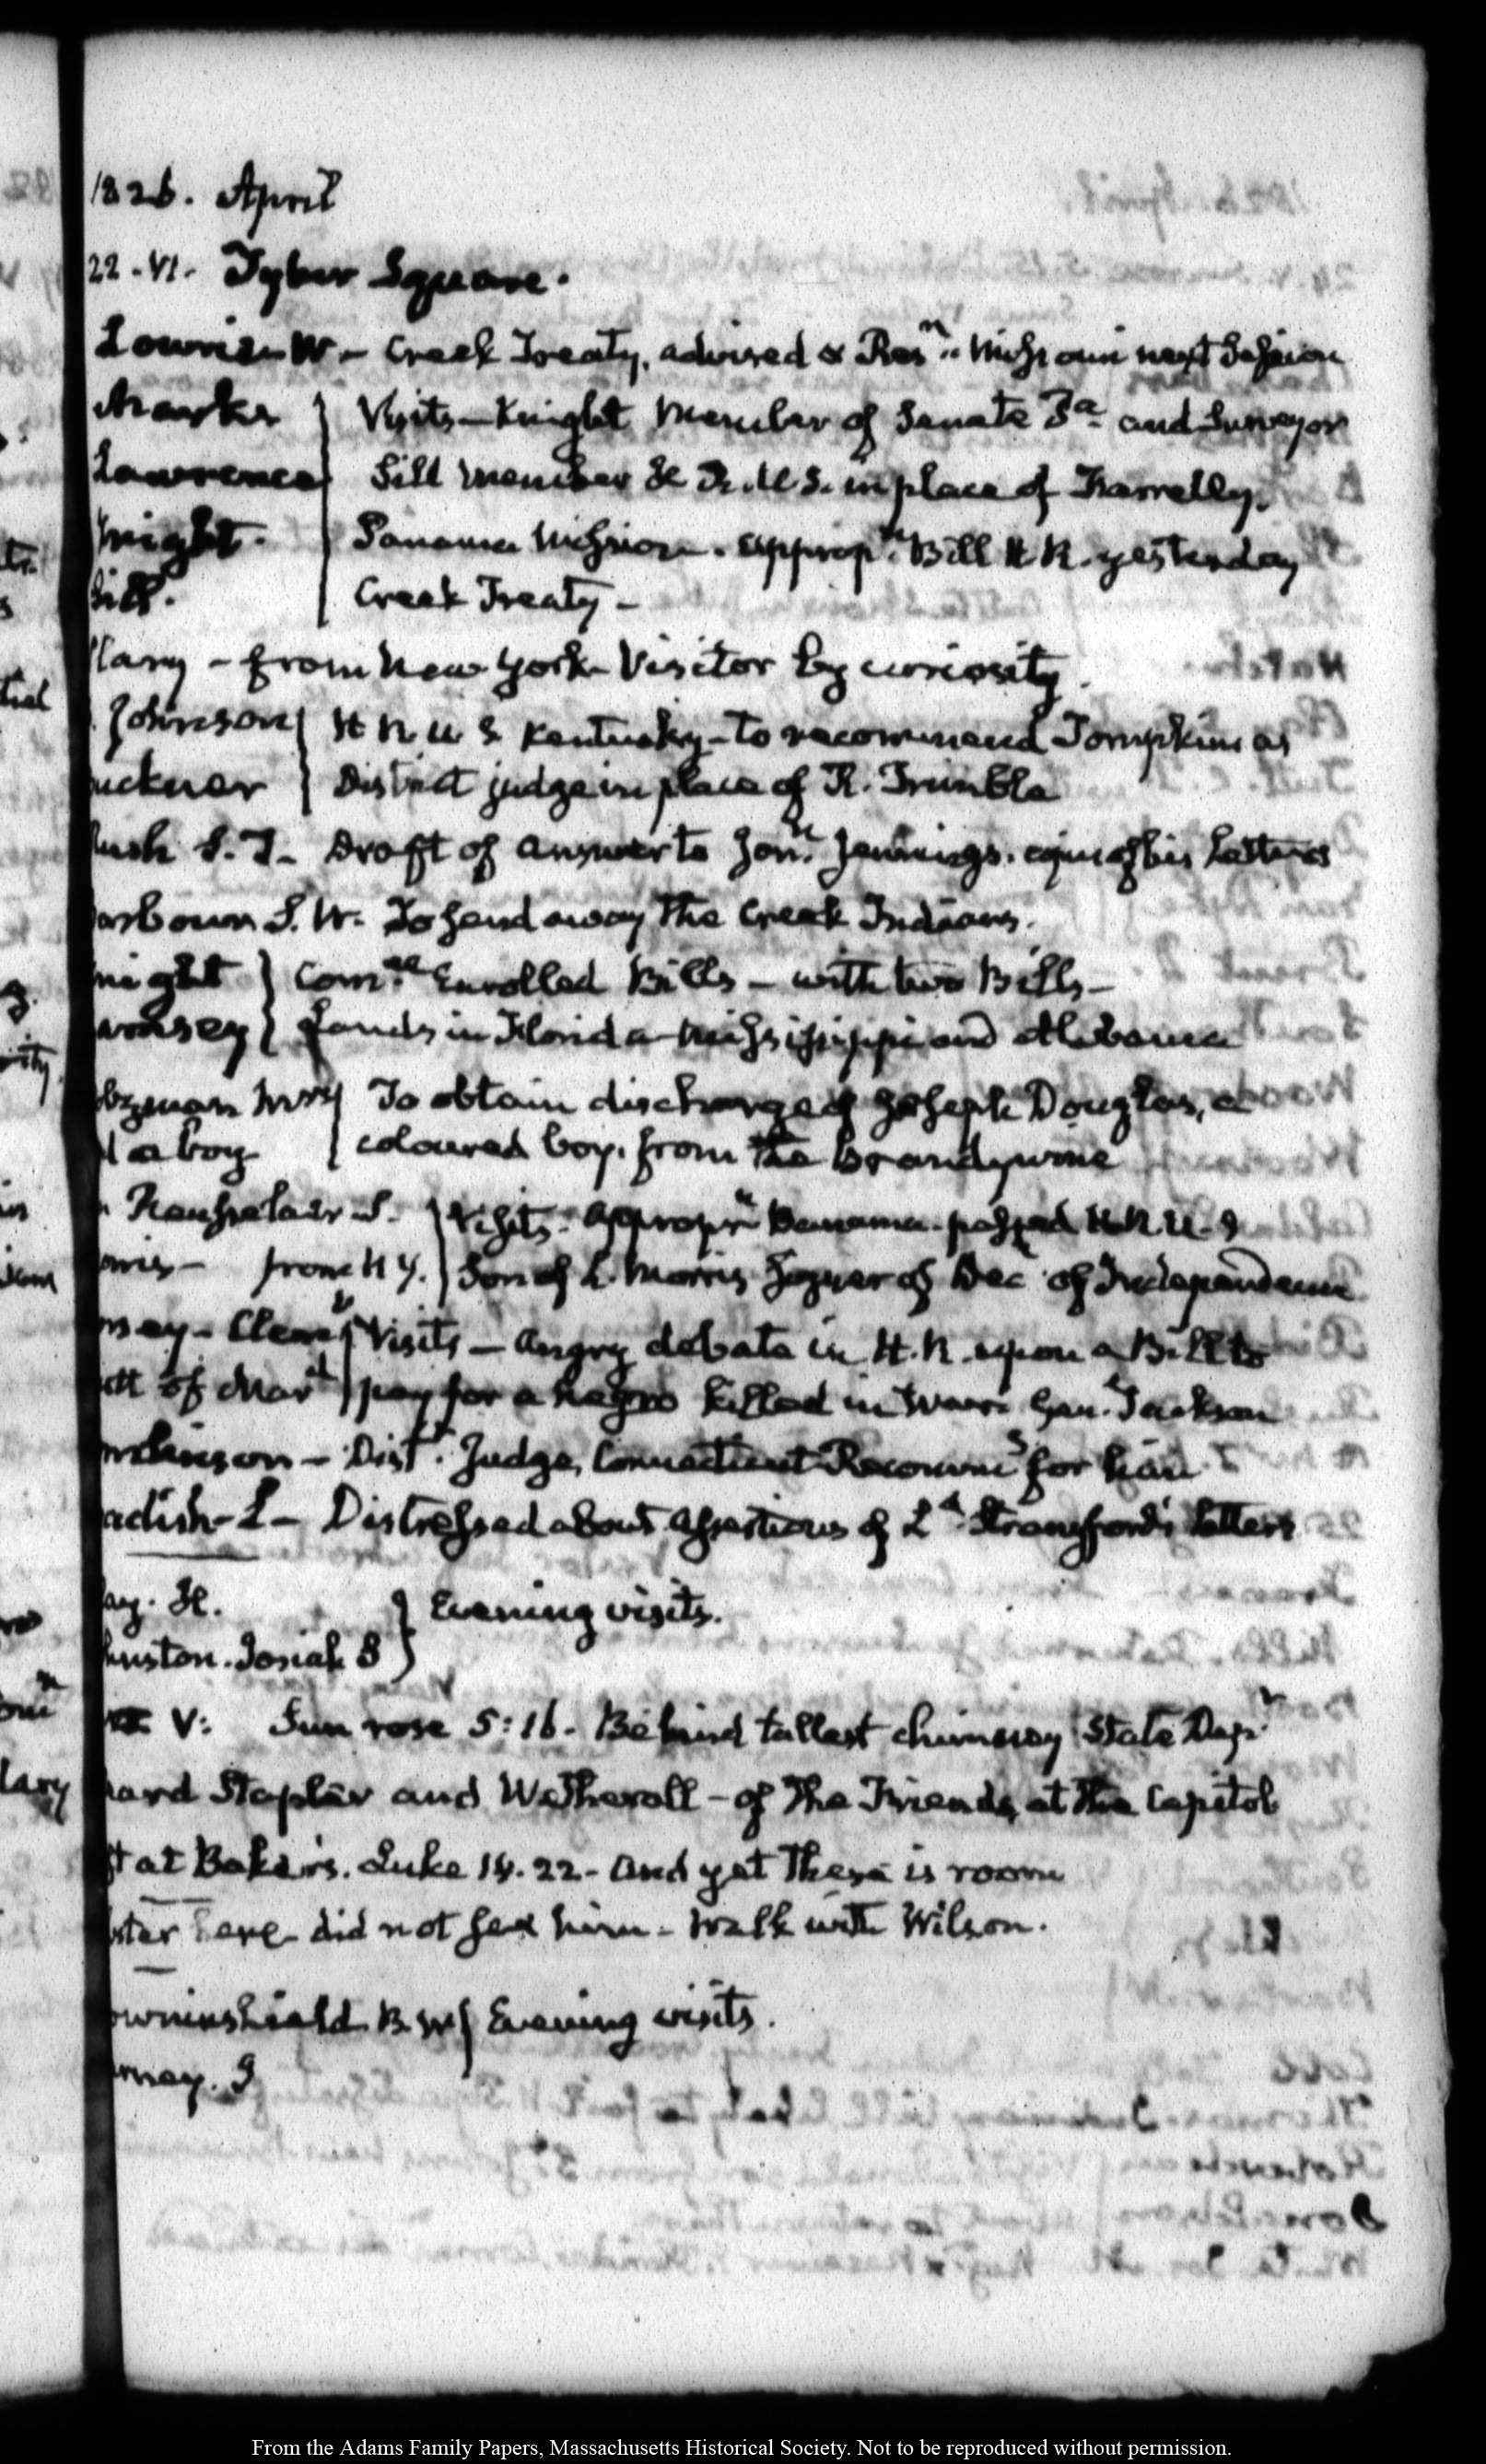 1826. April
22. VI. Tyber Square.
Lowrie W. – Creek Treaty, advised & Resn. Missouri next Session
Marks } Visits – Knight Member of Senate Pa. and Surveyor
Lawrence Sill Member H. R. U.S. in place of Farrelly.
Knight. Panama Mission. appropn. Bill H. R. yesterday
Sill. Creek Treaty –
Clary – from New York Visitor by curiosity.
Johnson } H R U S Kentucky – to recommend Tompkins as
uckner } District judge in place of R. Trimble
Rush S. T – Draft of answer to Jonn. Jennings. copies of his Letters
arbour S. W. To send away the Creek Indians.
night } Comee. Enrolled Bills – with two Bills –
amsey } Lands in Florida Mississippi and Alabama
ozman Mrs } To obtain discharge of Joseph Douglas, a
d a boy } coloured boy, from the Brandywine
n Rensselaer S. } Visits. Appropn Panama passed H. R. U. S
orris – from N Y. } Son of L. Morris Signer of Dec of Independence
rsey – Clemt } Visits – Angry debate in H. R. upon a Bill to
ett of Mard } pay for a negro killed in War. Genl. Jackson
mlinson – Dist. Judge, Connecticut Recomms for him
adish – L – Distressed about assertions of Ld. Strangford's letters
lay. H. } Evening visits.
hnston. Josiah S }
V: Sun rose 5:16. Behind tallest chimney State Dept
eard Stapler and Wetherall – of the Friends, at the Capitol
at Baker's. Luke 14. 22 – And yet there is room
bster here did not see him – Walk with Wilson.
owninshield B W } Evening visits.
rney. J
From the Adams Family Papers, Massachusetts Historical Society. Not to be reproduced without permission.